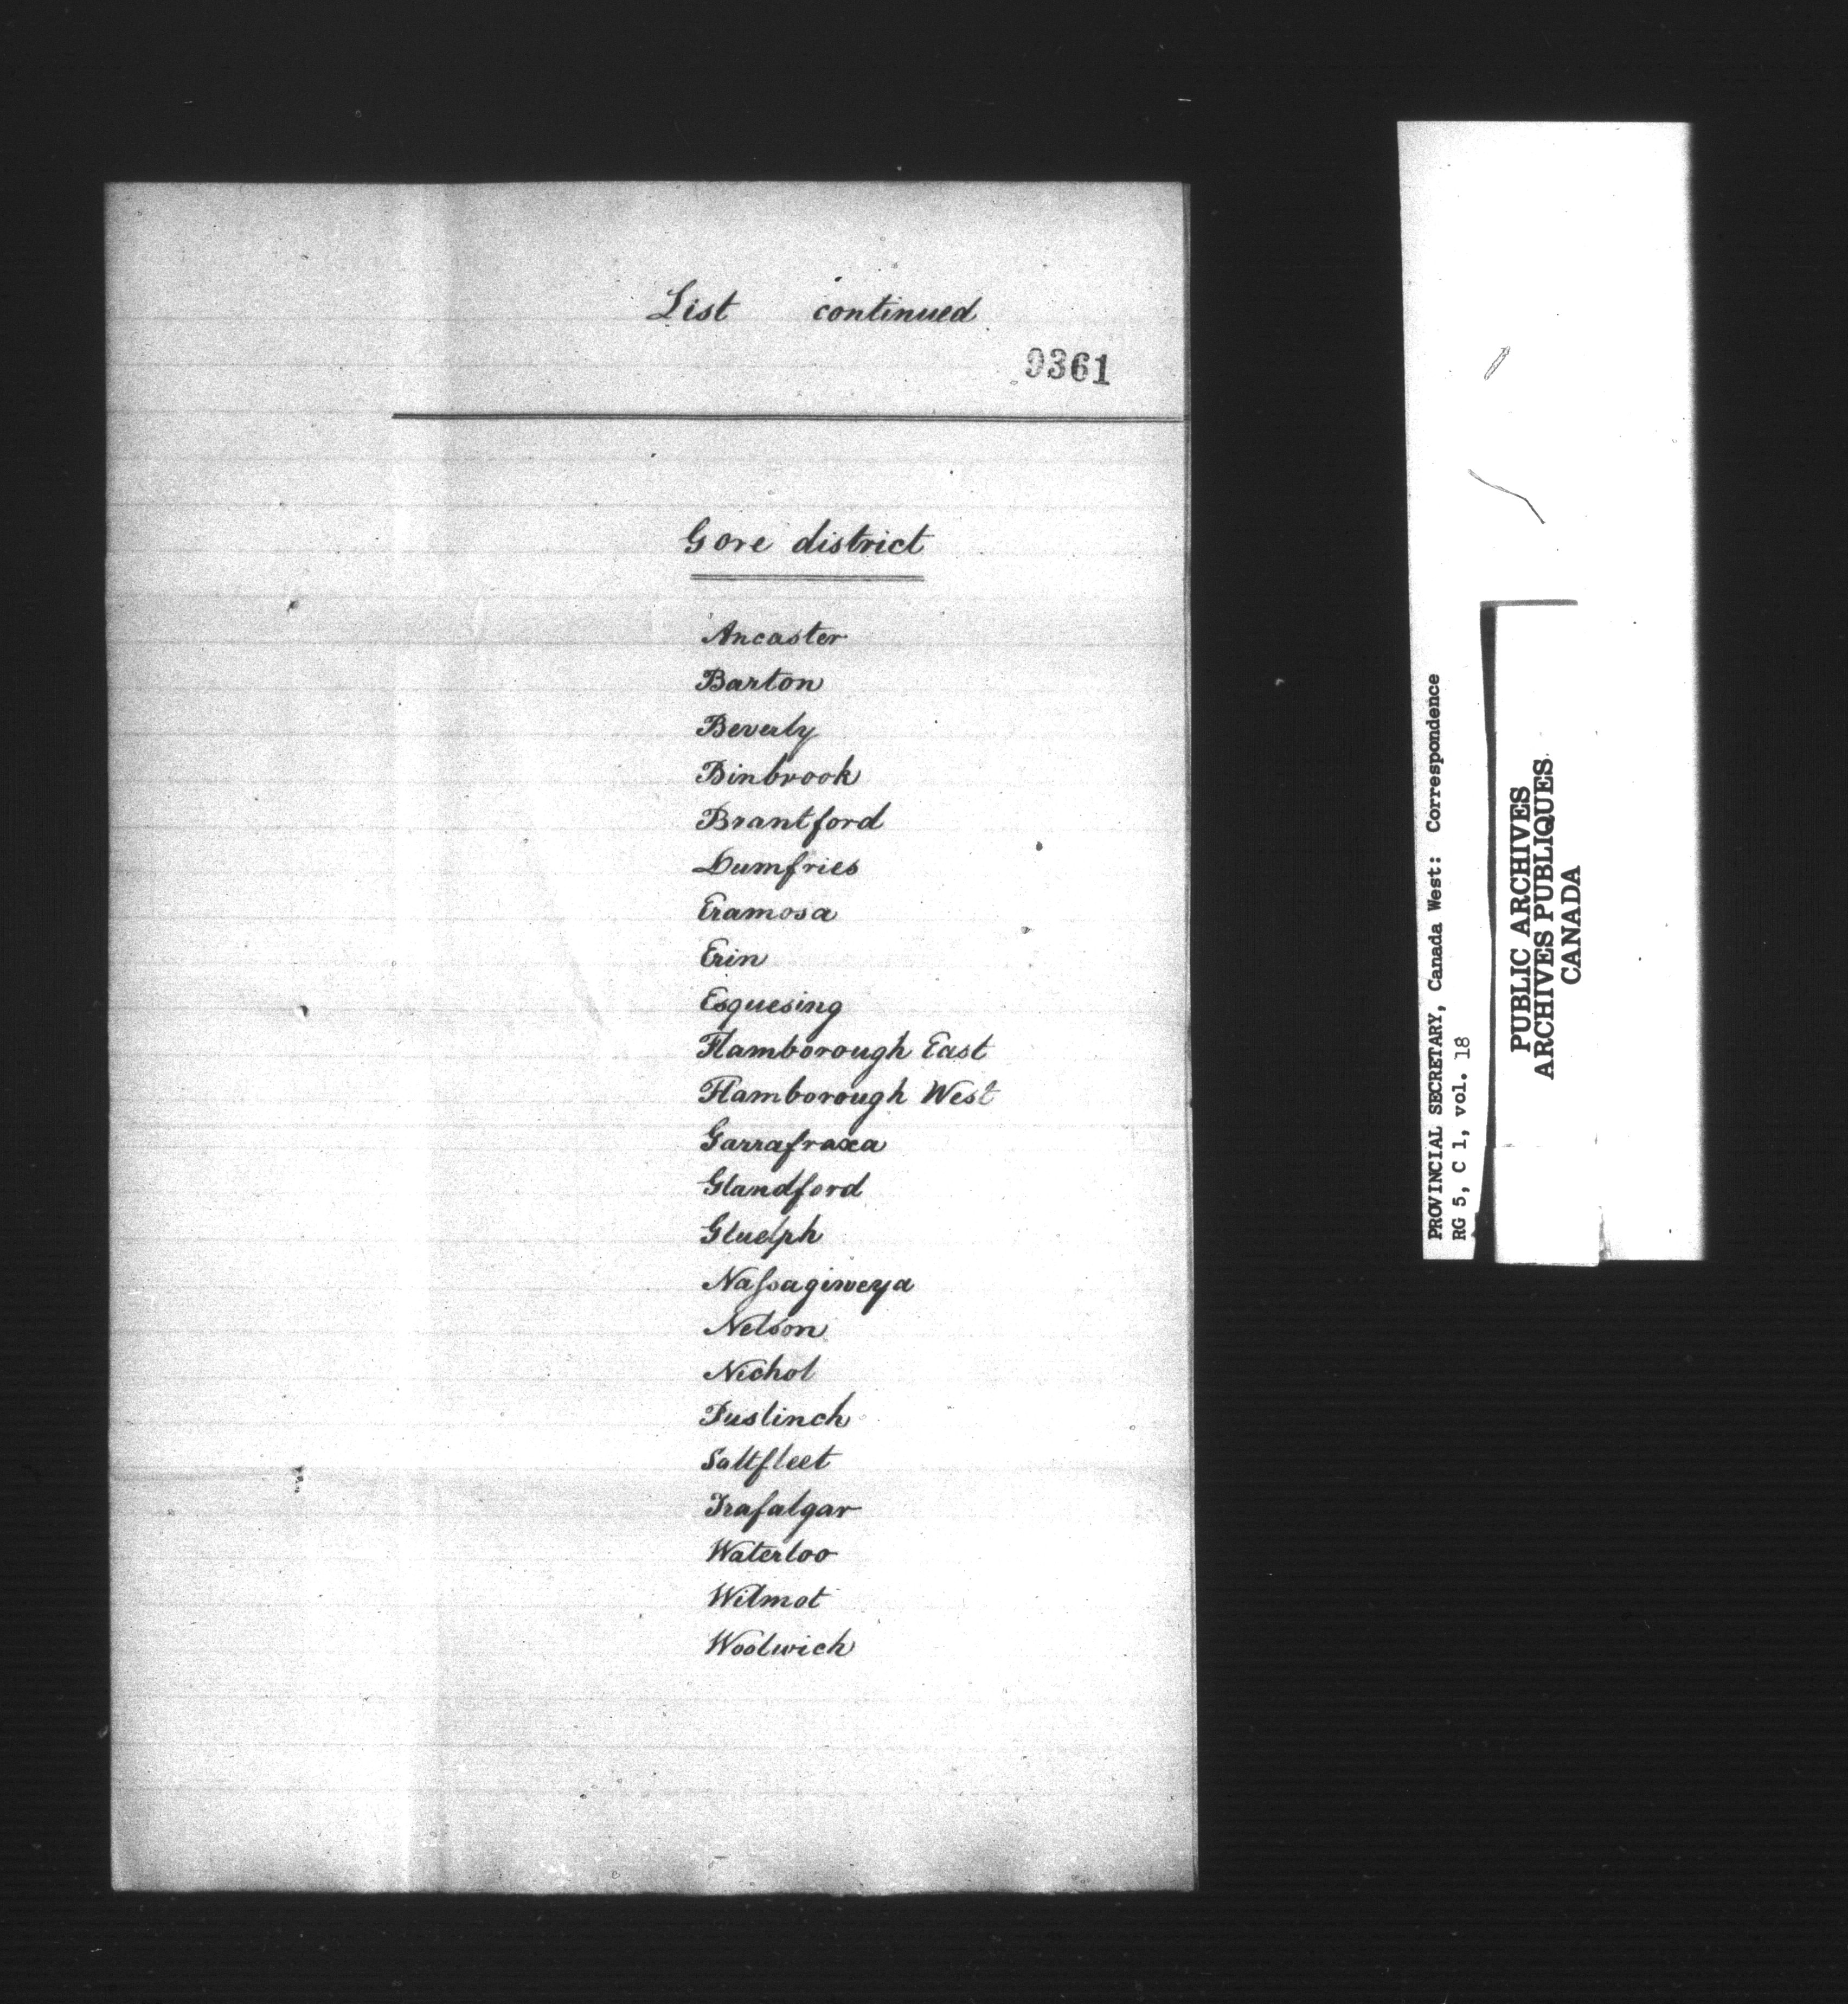 List continued
9361
Gore district
Ancaster
Barton
Beverly
Binbrook
Brantford
Dumfries
Eramosa
Erin
Esquesing
Flamborough East
Flamborough West
Garrafraxa
Glandford
Gluelph
Nassagiweya
Nelson
Nichol
Puslinch
Saltfleet
Trafalgar
Waterloo
Wilmot
Woolwich
PROVINCIAL SECRETARY, Canada West: Correspondence
RG 5, C 1, vol. 18
PUBLIC ARCHIVES
ARCHIVES PUBLIQUES
CANADA